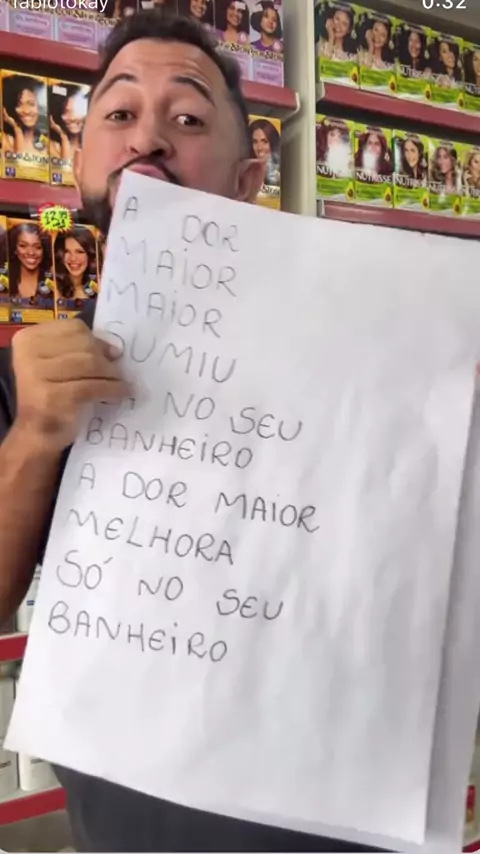 fabiotokay
0:32
A DOR
MAIOR
MAIOR
SUMIU
NO SEU
BANHEIRO
A DOR MAIOR
MELHORA
SÓ NO SEU
BANHEIRO
NUTRISSE
NUTRISSE
NUTRISSE
NUTRISSE